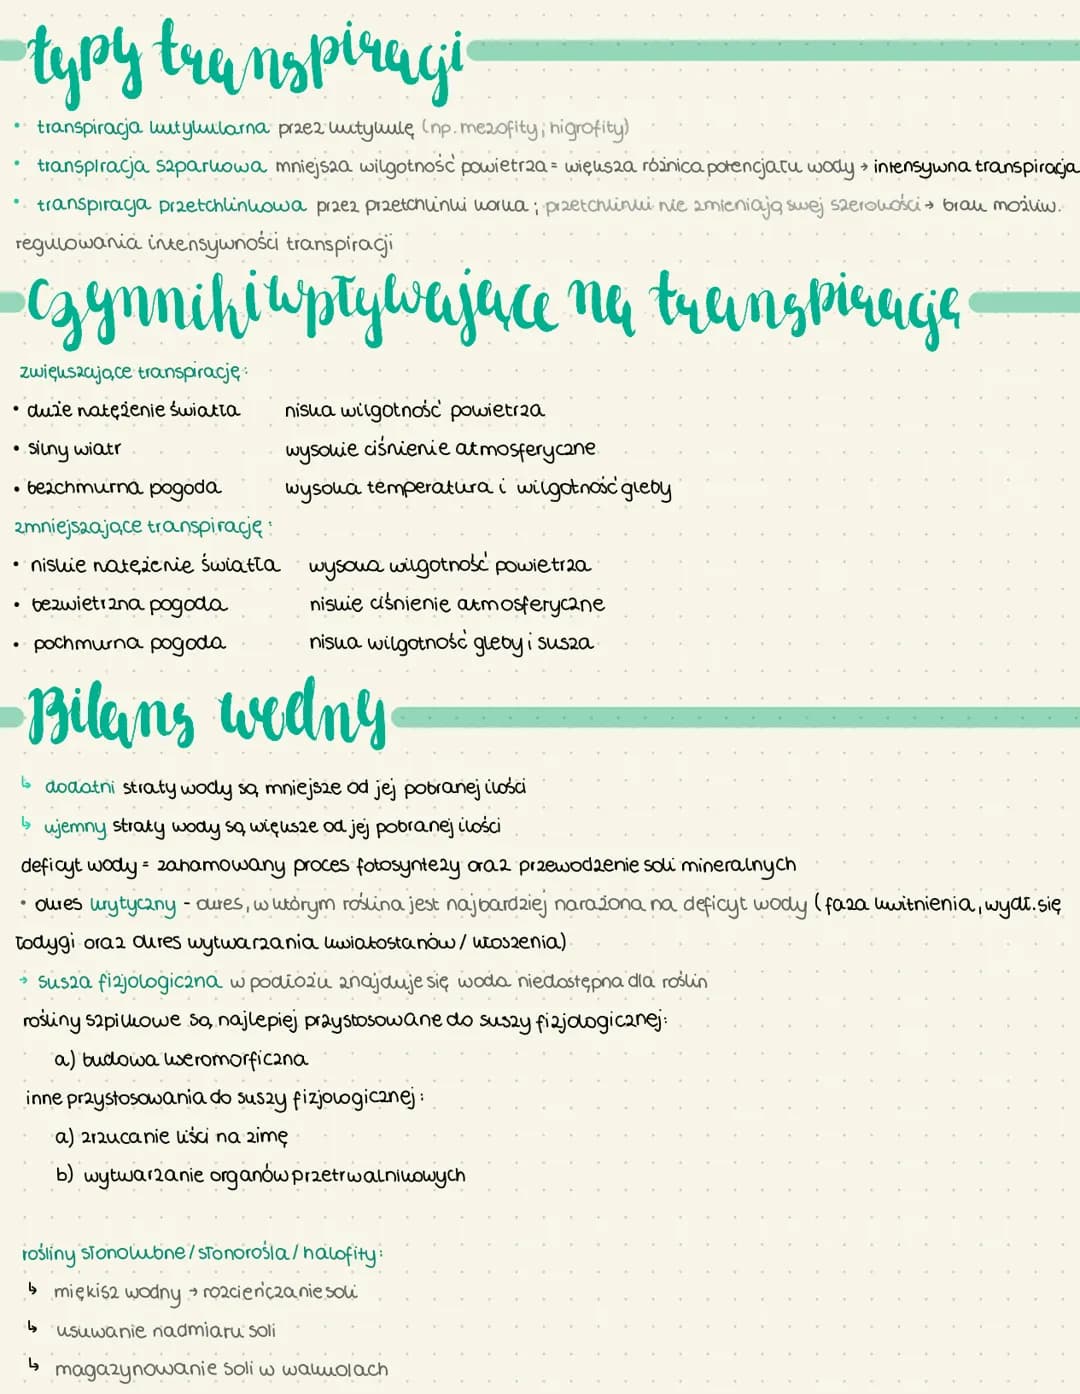 typy transpiracji
• transpiracja kutykularna przez kutykulę (np. mezofity; higrofity)
• transpiracja szparkowa mniejsza wilgotność powietrza = większa różnica potencjału wody → intensywna transpiracja
• transpiracja przetchlinkowa przez przetchlinki korka; przetchlinki nie zmieniają swej szerokości → brak możliw.
regulowania intensywności transpiracji
Czynniki wpływające na transpirację
zwiększające transpirację:
• duże natężenie światła niska wilgotność powietrza
• silny wiatr wysokie ciśnienie atmosferyczne
• bezchmurna pogoda wysoka temperatura i wilgotność gleby
zmniejszające transpirację:
• niskie natężenie światła wysoka wilgotność powietrza
• bezwietrzna pogoda niskie ciśnienie atmosferyczne
• pochmurna pogoda niska wilgotność gleby i susza
Bilans wodny
↳ dodatni straty wody są mniejsze od jej pobranej ilości
↳ ujemny straty wody są większe od jej pobranej ilości
deficyt wody = zahamowany proces fotosyntezy oraz przewodzenie soli mineralnych
• okres krytyczny - okres, w którym roślina jest najbardziej narażona na deficyt wody (faza kwitnienia, wydł. się
łodygi oraz okres wytwarzania kwiatostanów / kłoszenia)
→ susza fizjologiczna w podłożu znajduje się woda niedostępna dla roślin
rośliny szpilkowe są najlepiej przystosowane do suszy fizjologicznej:
a) budowa kseromorficzna
inne przystosowania do suszy fizjologicznej:
a) zrzucanie liści na zimę
b) wytwarzanie organów przetrwalnikowych
rośliny słonolubne / słonorośla / halofity:
↳ miękisz wodny → rozcieńczanie soli
↳ usuwanie nadmiaru soli
↳ magazynowanie soli w wakuolach